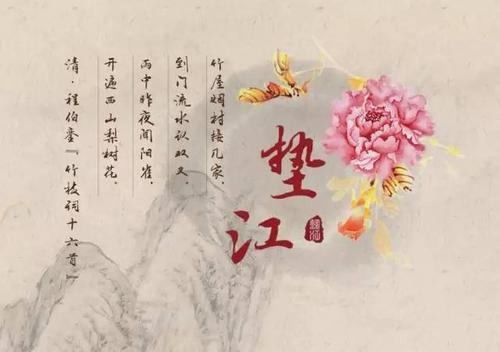 竹屋烟村接几家，
到门流水认双叉，
雨中昨夜闻阳雀，
开遍西山梨树花。
清·程伯銮『竹枝词十六首』
垫江